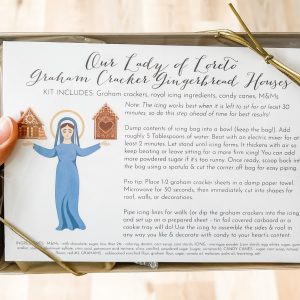 Our Lady of Loreto
Graham Cracker Gingerbread Houses
KIT INCLUDES: Graham crackers, royal icing ingredients, candy canes, M&Ms
Note: The icing works best when it is left to sit for at least 30
minutes, so do this step ahead of time for best results!
Dump contents of icing bag into a bowl (keep the bag!). Add
roughly 5 Tablespoons of water. Beat with an electric mixer for at
least 2 minutes. Let stand until icing forms. It thickens with air so
keep beating or leave sitting for a more firm icing! You can add
more powdered sugar if it's too runny. Once ready, scoop back into
the bag using a spatula & cut the corner off bag for easy piping
Pro tip: Place 1/2 graham cracker sheets in a damp paper towel.
Microwave for 30 seconds, then immediately cut into shapes for
roof, walls, or decorations.
Pipe icing lines for walls (or dip the graham crackers into the icing)
and set up on a prepared sheet - tin foil covered cardboard or a
cookie tray will do! Use the icing to assemble the sides & roof in
any way you like & decorate with candy to your heart's content.